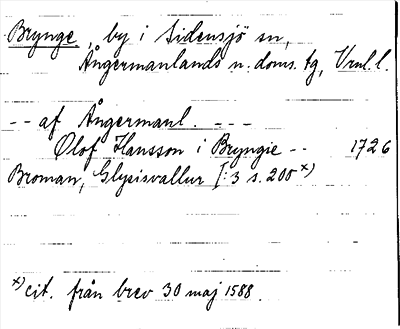 Brynge, by i Sidensjö sn,
Ångermanlands n. doms. tg, Vnl. l.
-- af Ångermanl. ---
Olof Hansson i Bryngie -- 1726
Broman, Glysisvallur I:3 s. 200 x)
x) cit. från brev 30 maj 1588.